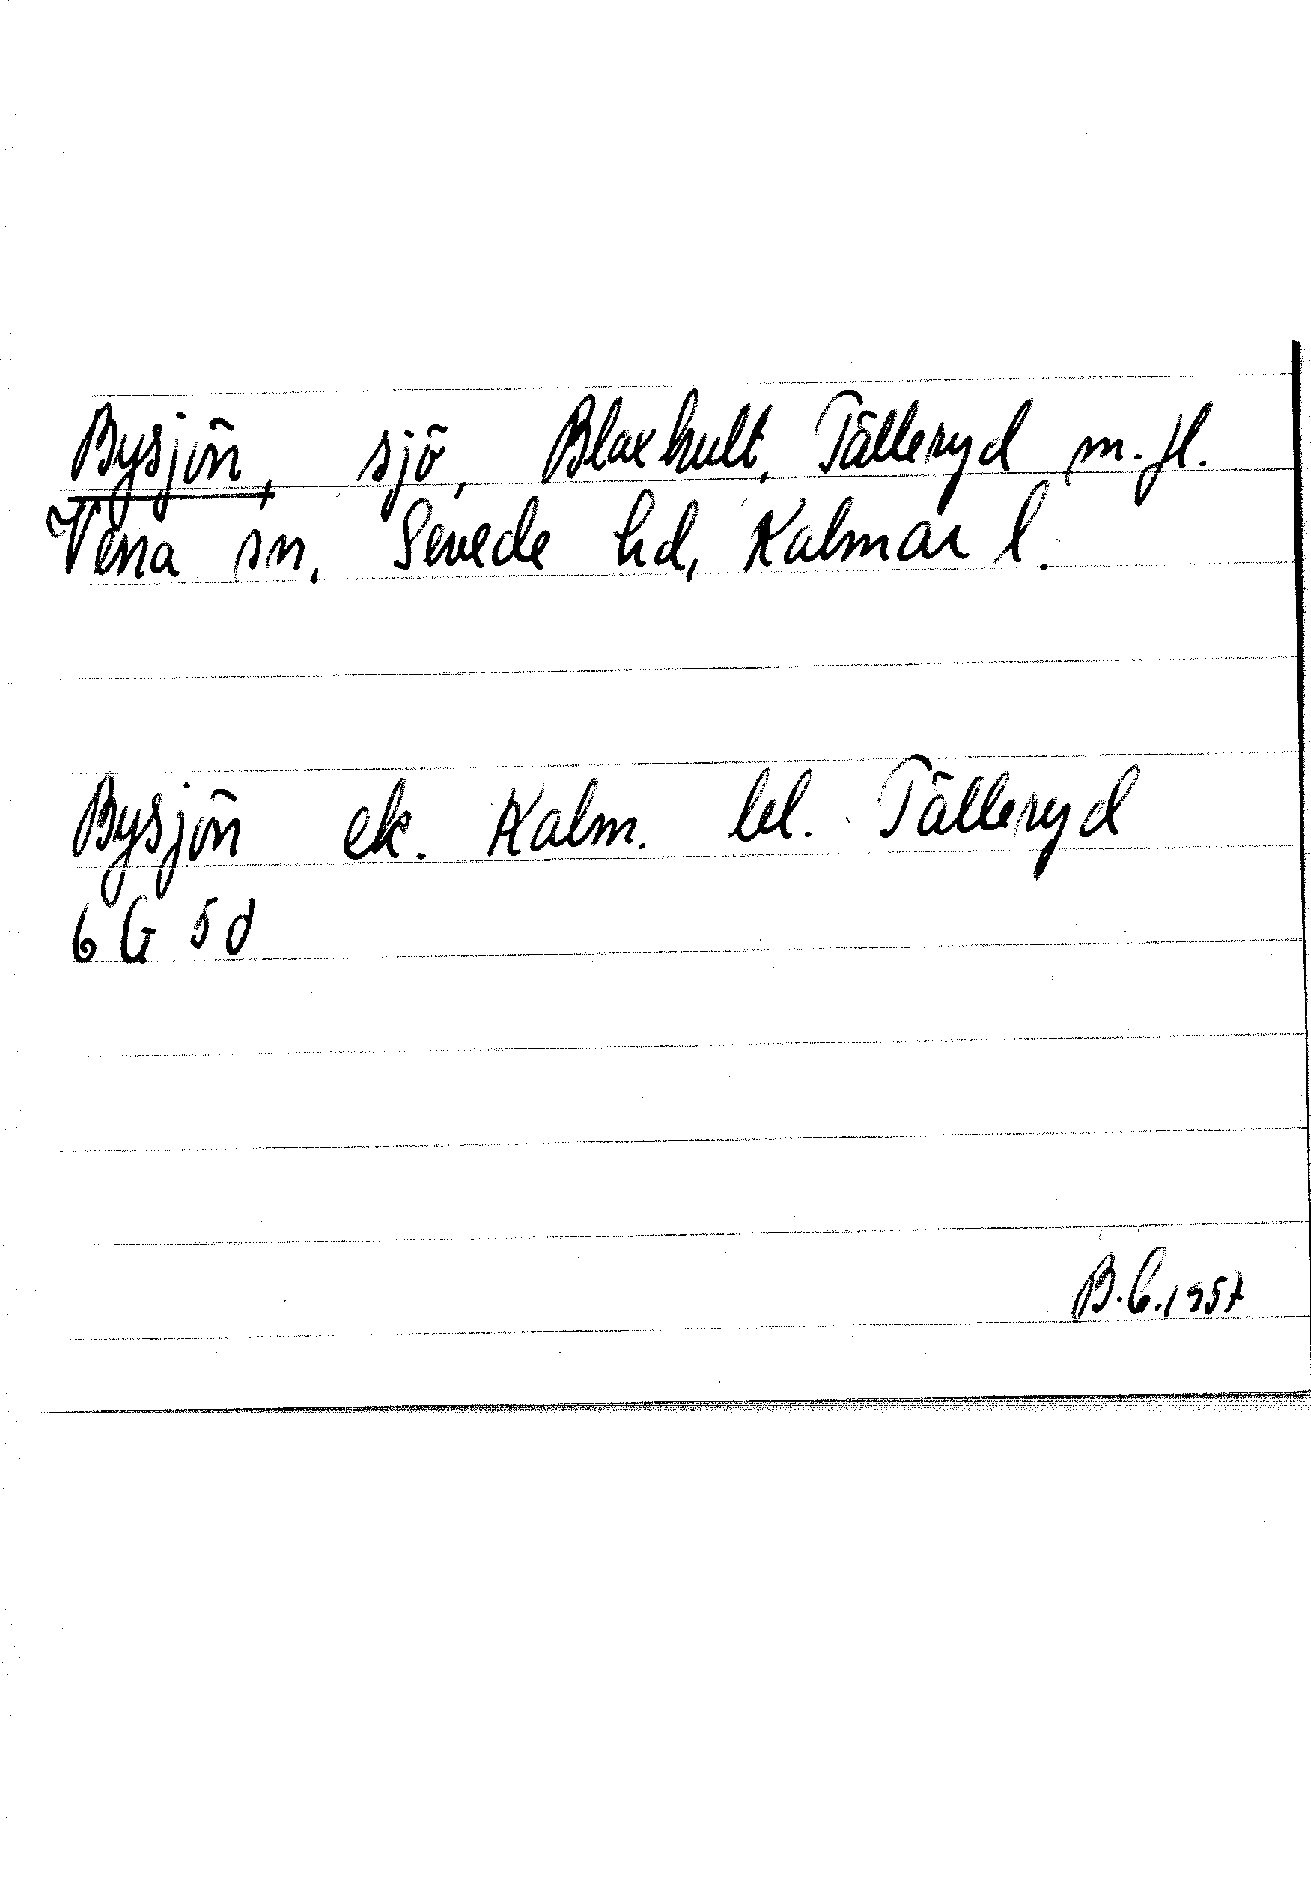 Bysjön, sjö, Blaxhult, Tälleryd m.fl.
Vena sn, Sevede hd, Kalmar l.
Bysjön ek. Kalm. bl. Tälleryd
6 G 5 d
B.C. 1957